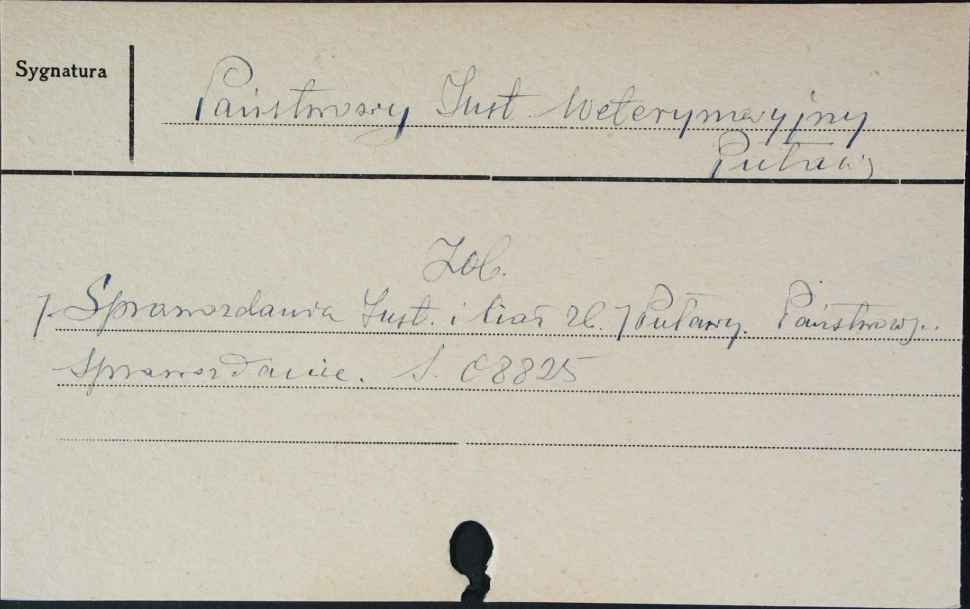 Sygnatura
Państwowy Inst. Weterynaryjny
Puławy
Zob.
Sprawozdania Inst. i Ciał Puławy. Państwowy..
Sprawozdanie. S. C8825